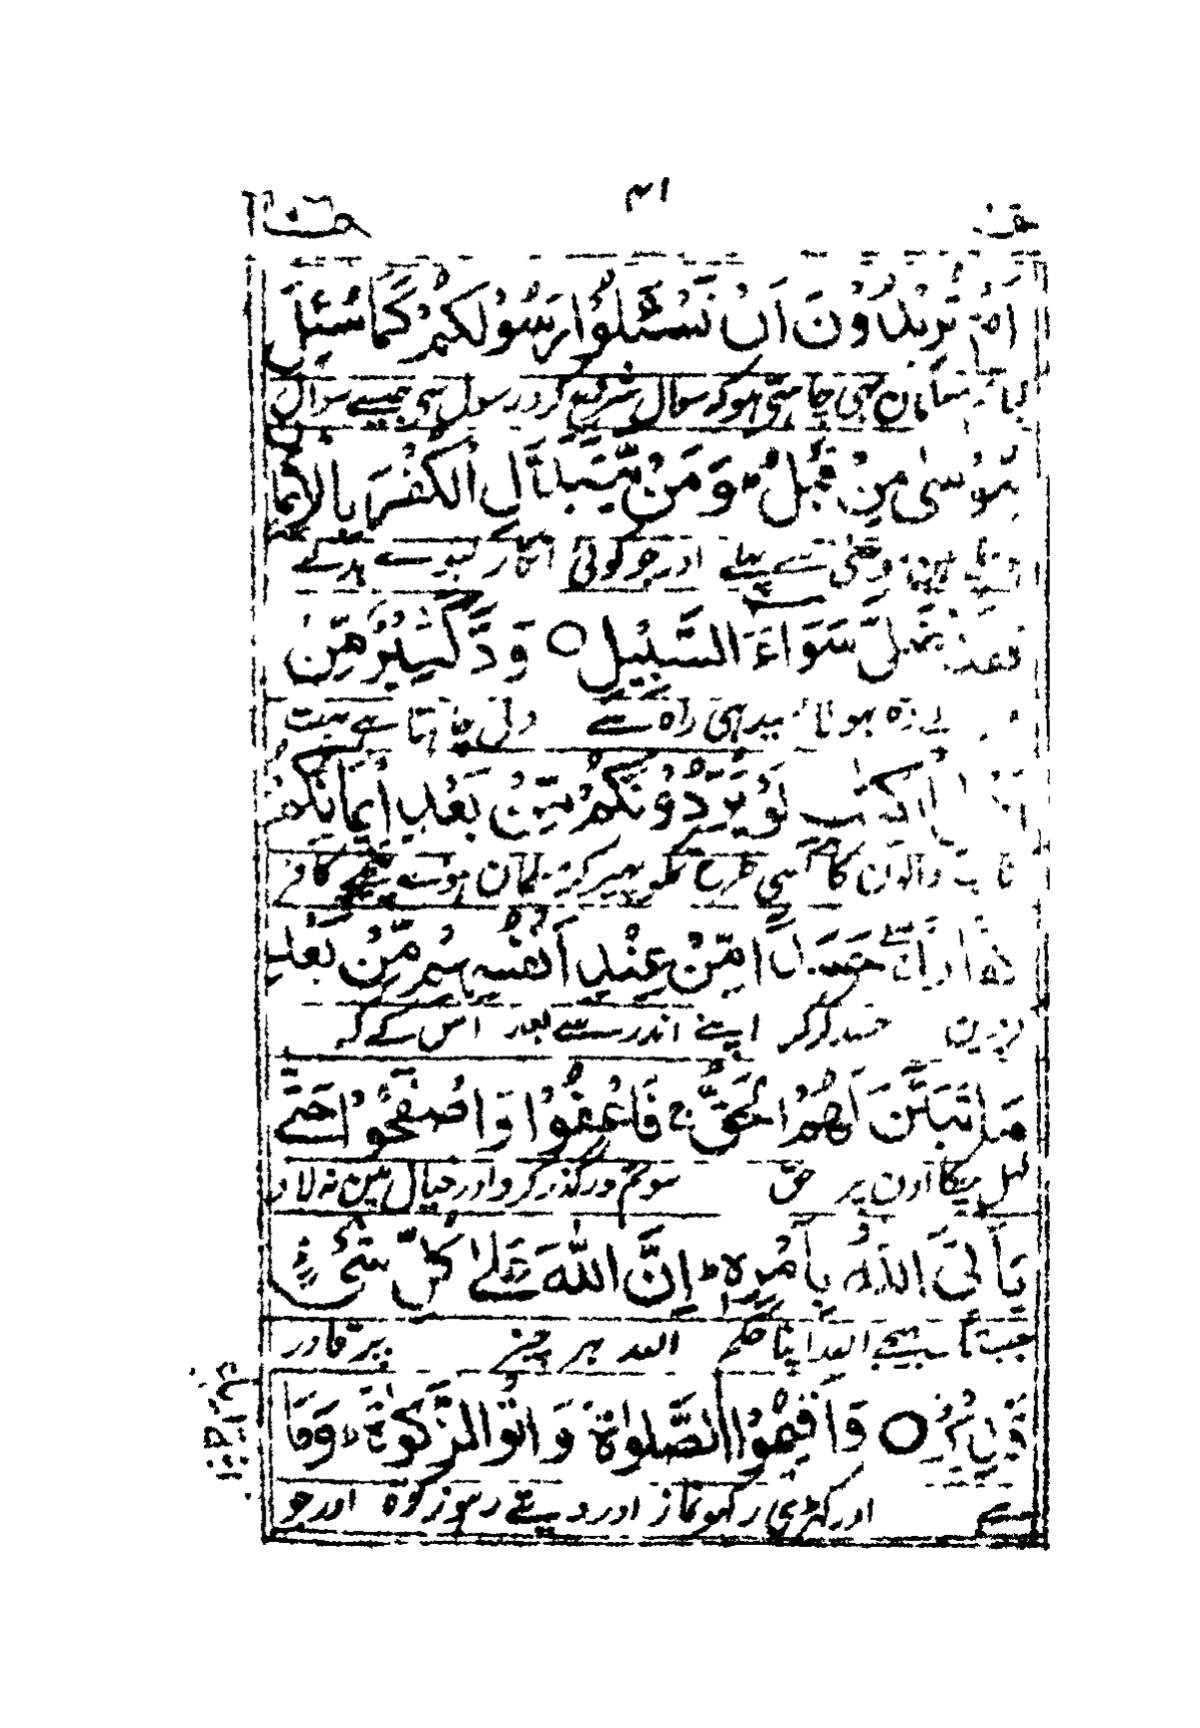 ۴۱
اَمْ تُرِيْدُوْنَ اَنْ تَسْئَلُوْا رَسُوْلَكُمْ كَمَا سُئِلَ
مسلمان بھی چاہتی ہو کہ سوال شروع کرو رسول سی جیسے سوال
مُوْسٰى مِنْ قَبْلُ ؕ وَمَنْ يَّتَبَدَّلِ الْكُفْرَ بِالْاِيْمَا
سے پہلے اور جو کوئی انکار لیوے بدلے
فَقَدْ ضَلَّ سَوَآءَ السَّبِيْلِ ○ وَدَّ كَثِيْرٌ مِّنْ
وہ بھولا سیدہی راہ سے دل چاہتا ہے بہت
اَهْلِ الْكِتٰبِ لَوْ يَرُدُّوْنَكُمْ مِّنْۢ بَعْدِ اِيْمَانِكُمْ
والون کا کسی طرح تمکو پھیر کر مسلمان ہوئے پیچھے کافر
كُفَّارًا ۚۖ حَسَدًا مِّنْ عِنْدِ اَنْفُسِهِمْ مِّنْۢ بَعْدِ
حسد کر کر اپنے اندر سے بعد اس کے کہ
مَا تَبَيَّنَ لَهُمُ الْحَقُّ ۚ فَاعْفُوْا وَاصْفَحُوْا حَتّٰى
کہل چکا اون پر حق سو تم درگذر کرو اور خیال مین نہ لاؤ
يَاْتِىَ اللّٰهُ بِاَمْرِهٖ ؕ اِنَّ اللّٰهَ عَلٰى كُلِّ شَىْءٍ
جب تک بھیجے اللہ اپنا حکم اللہ ہر چیز پر قادر
قَدِيْرٌ ○ وَاَقِيْمُوا الصَّلٰوةَ وَاٰتُوا الزَّكٰوةَ ؕ وَمَا
ہے اور کھڑی رکھو نماز اور دیتے رہو زکوٰۃ اور جو